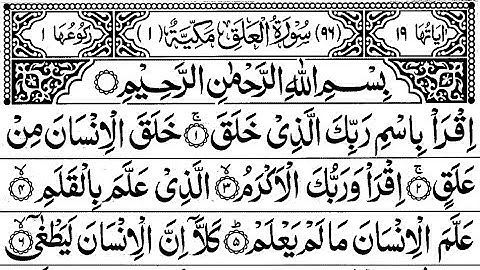 اٰیَاتُهَا ١٩ (٩٦) سُوْرَةُ الْعَلَقِ مَكِّيَّةٌ (١) رُكُوْعُهَا ١
بِسْمِ اللهِ الرَّحْمٰنِ الرَّحِيْمِ
اِقْرَاْ بِاسْمِ رَبِّكَ الَّذِيْ خَلَقَ ۚ﴿١﴾ خَلَقَ الْاِنْسَانَ مِنْ
عَلَقٍ ۚ﴿٢﴾ اِقْرَاْ وَرَبُّكَ الْاَكْرَمُ ۙ﴿٣﴾ الَّذِيْ عَلَّمَ بِالْقَلَمِ ۙ﴿٤﴾
عَلَّمَ الْاِنْسَانَ مَا لَمْ يَعْلَمْ ؕ﴿٥﴾ كَلَّاۤ اِنَّ الْاِنْسَانَ لَيَطْغٰۤى ۙ﴿٦﴾